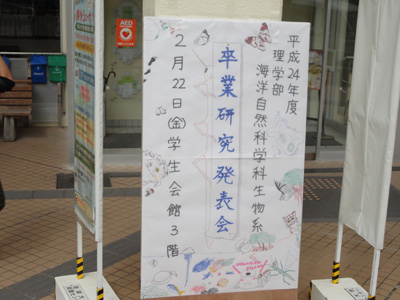 平成24年度
理学部
海洋自然科学科生物系
卒業研究発表会
2月22日(金)学生会館3階
AED